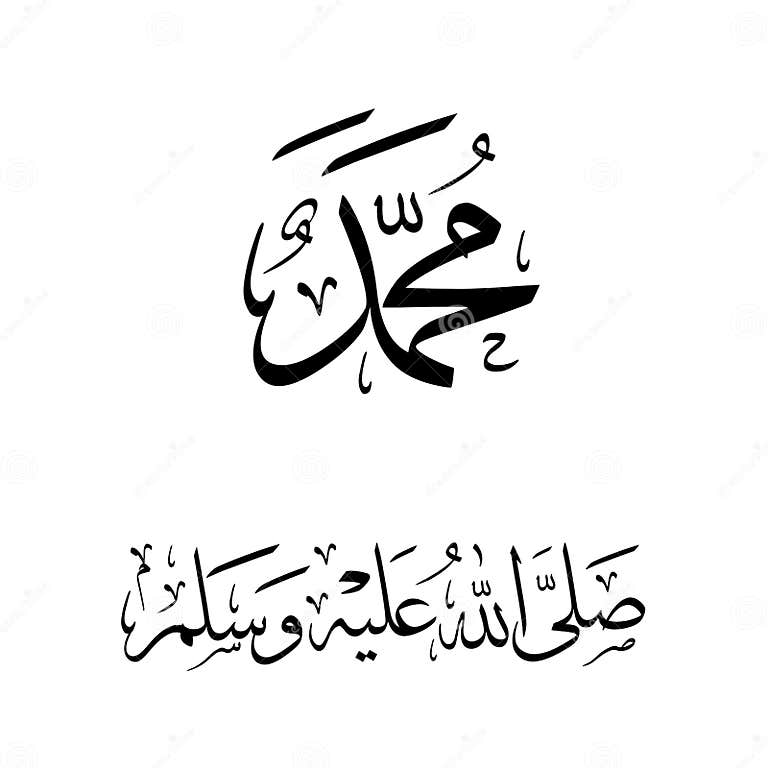 مُحَمَّدٌ
صَلَّى اللّٰهُ عَلَيْهِ وَسَلَّمَ